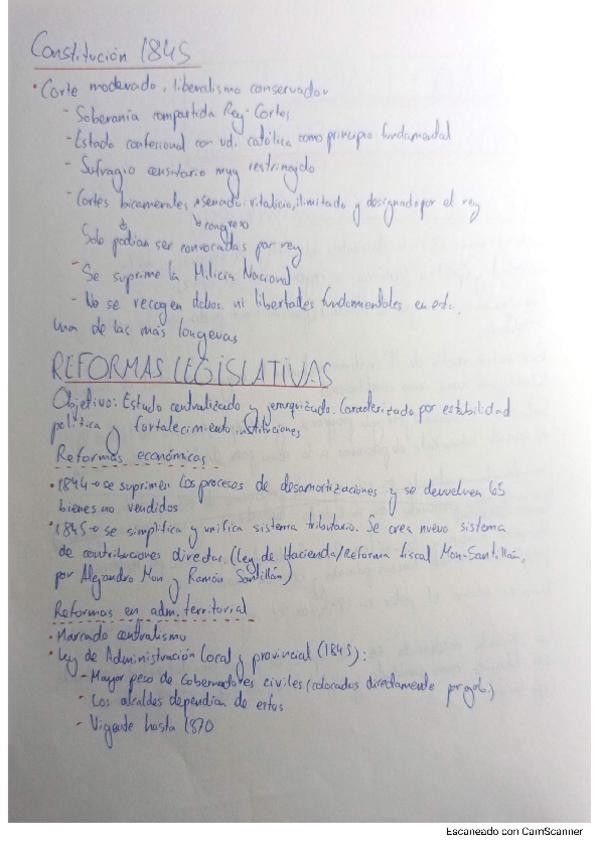 Constitución 1845
• Corte moderado, liberalismo conservador
- Soberanía compartida Rey-Cortes
- Estado confesional con católica como principio fundamental
- Sufragio censitario muy restringido
- Cortes bicamerales senado: vitalicio, ilimitado y designado por el rey
congreso
Solo podían ser convocadas por rey
- Se suprime la Milicia Nacional
- No se recogen dchos. ni libertades fundamentales en esta.
Una de las más longevas
REFORMAS LEGISLATIVAS
Objetivo: Estado centralizado y jerarquizado. Caracterizado por estabilidad
política y fortalecimiento instituciones
Reformas económicas
• 1844 → se suprimen los procesos de desamortizaciones y se devuelven los
bienes no vendidos
• 1845 → se simplifica y unifica sistema tributario. Se crea nuevo sistema
de contribuciones directas. (Ley de Hacienda/Reforma fiscal Mon-Santillán,
por Alejandro Mon y Ramón Santillán)
Reformas en adm. territorial
• Marcado centralismo
• Ley de Administración Local y provincial (1845):
- Mayor peso de Gobernadores civiles (colocados directamente por gob.)
- Los alcaldes dependían de estos
- Vigente hasta 1870
Escaneado con CamScanner